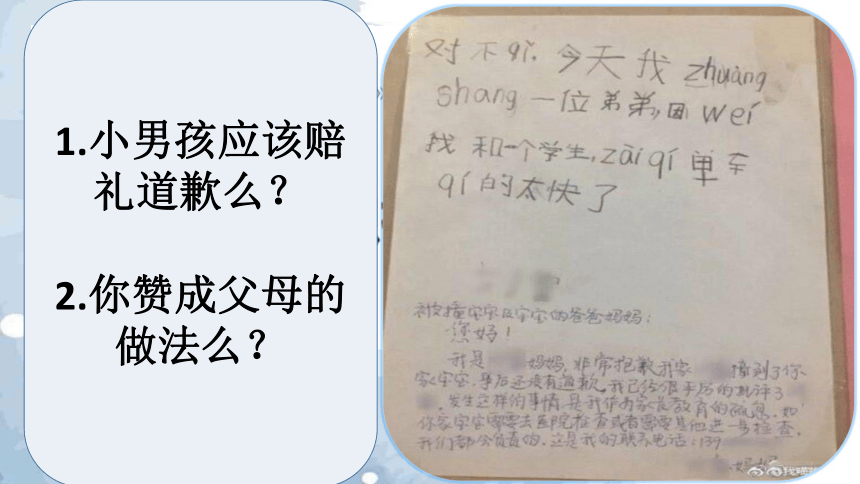 1.小男孩应该赔
礼道歉么？
2.你赞成父母的
做法么？
对不qǐ. 今天我 zhuàng
shang 一位弟弟,,因 wéi
我 和一个学生, zài qí 单车
qí 的太快了
被撞宝宝及宝宝的爸爸妈妈：
您好！
我是 妈妈，非常抱歉我家 撞到了你
家宝宝，事后还没有道歉。我已经很严厉的批评了
。发生这样的事情是我作为家长教育的疏忽，如
你家宝宝需要去医院检查或者需要其他进一步检查，
我们都会负责的。这是我的联系电话：139
妈妈